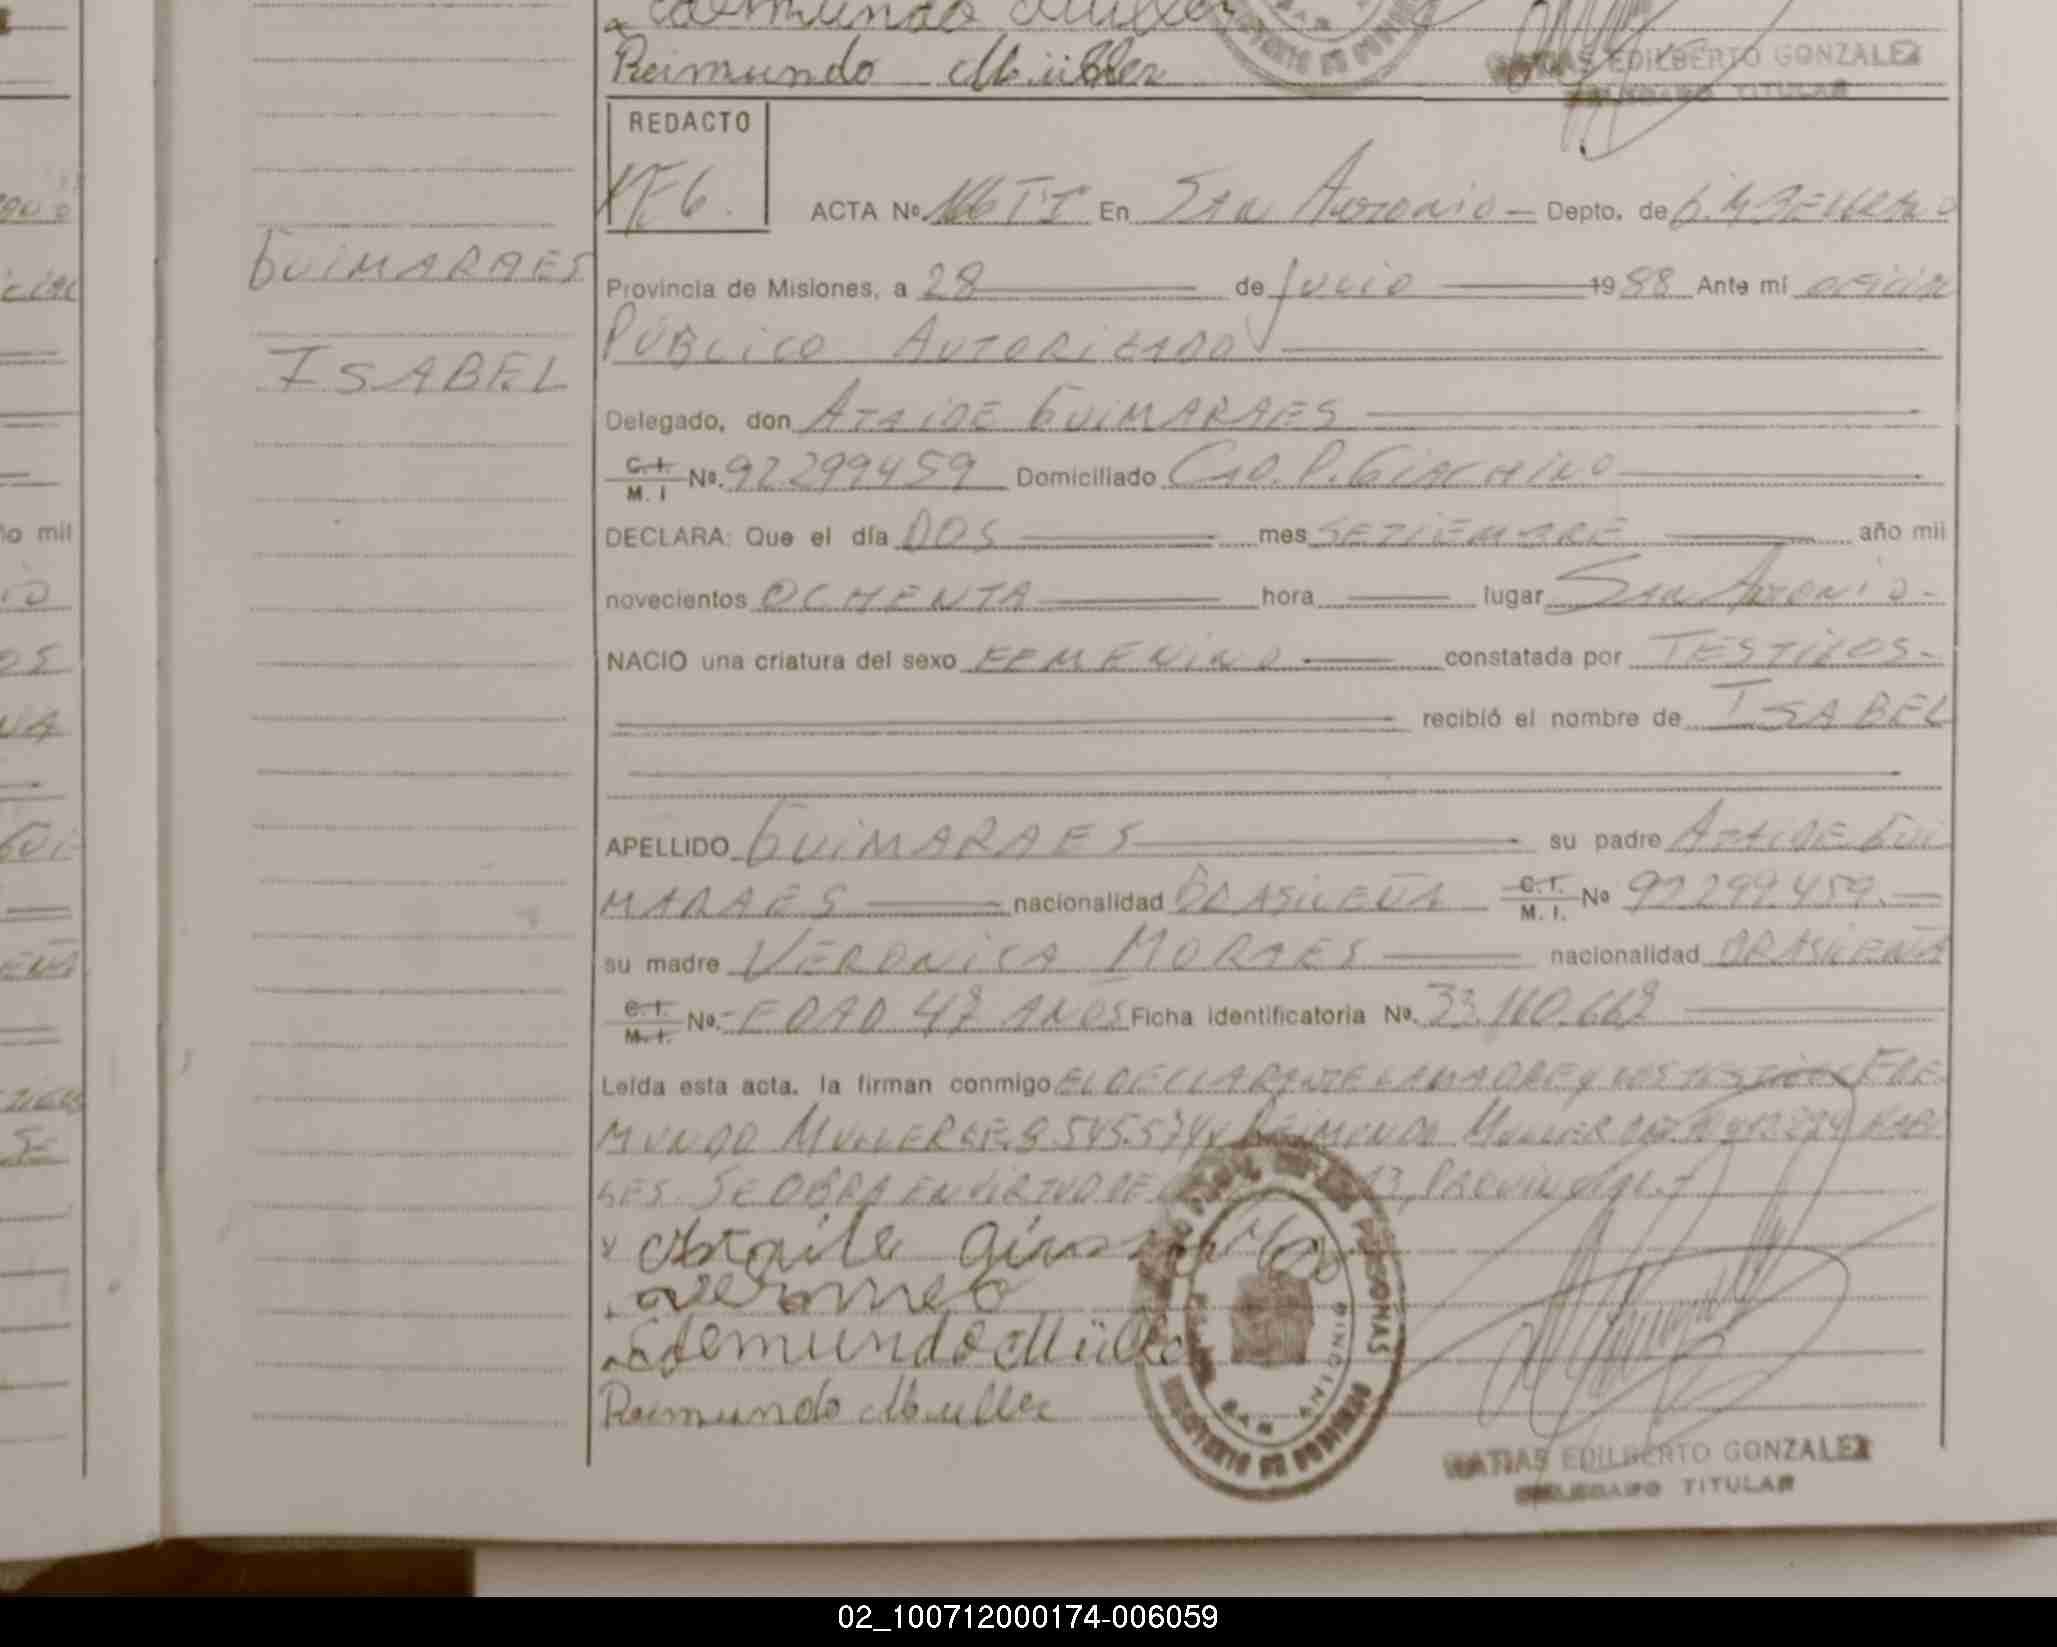 Edemundo Muller
Reimundo Müller
MATIAS EDILBERTO GONZALEZ
DELEGADO TITULAR
REDACTO
ACTA Nº En SAN ANTONIO — Depto. de
GUIMARAES
Provincia de Misiones, a 28 de Julio 1988 Ante mí OFICIAL
PÚBLICO AUTORIZADO
ISABEL
Delegado, don ATAIDE GUIMARAES
C. I. M. I Nº. 92299459 Domiciliado CAO. P. GIACHINO
DECLARA: Que el día DOS mes SETIEMBRE año mil
novecientos OCHENTA hora lugar SAN ANTONIO -
NACIO una criatura del sexo FEMENINO constatada por TESTIGOS -
recibió el nombre de ISABEL
APELLIDO GUIMARAES su padre ATAIDE GUI
MARAES nacionalidad BRASILEÑA C. I. M. I. Nº 92.299.459.
su madre VERONICA MORAES nacionalidad BRASILEÑA
C. I. M. I. Nº. - EDAD 42 AÑOS Ficha identificatoria Nº. 33.160.662
Leída esta acta, la firman conmigo EL DECLARANTE LA MADRE Y LOS TESTIGOS EDE
MUNDO MULLER 8.545.574 Y REIMUNDO MULLER
SE OBRA EN VIRTUD DE PROVINCIAL
Edemundo Müller
Reimundo Muller
MATIAS EDILBERTO GONZALEZ
DELEGADO TITULAR
02_100712000174-006059